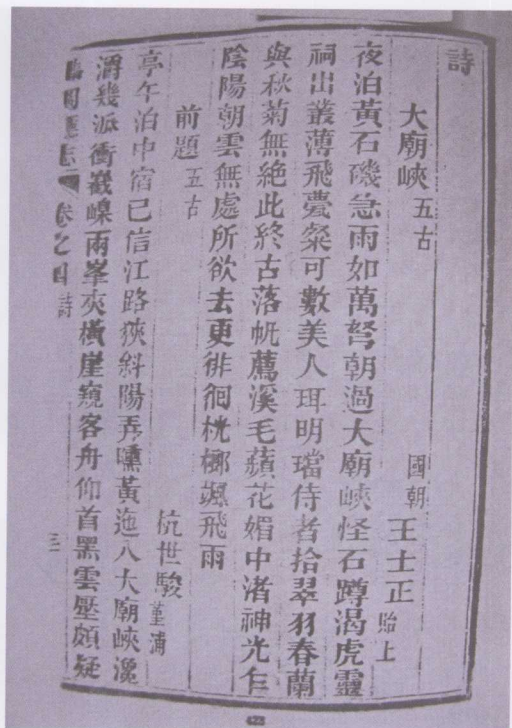 詩
大廟峽 五古
國朝 王士正 貽上
夜泊黃石磯急雨如萬弩朝過大廟峽怪石蹲渴虎靈
祠出叢薄飛甍粲可數美人珥明璫侍者拾翠羽春蘭
與秋菊無絕此終古落帆薦溪毛蘋花媚中渚神光乍
陰陽朝雲無處所欲去更徘徊桄榔颯飛雨
前題 五古
杭世駿 堇浦
亭午泊中宿已信江路狹斜陽弄曛黃迤入大廟峽瀺
灂幾派衝巀嵲兩峯夾橫崖窺客舟仰首黑雲壓頗疑
卷之四 詩
三